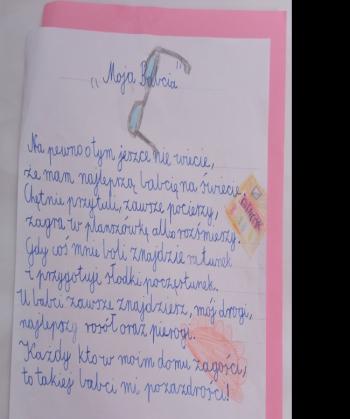 „Moja Babcia”
Na pewno o tym jeszcze nie wiecie,
że mam najlepszą babcię na świecie.
Chętnie przytuli, zawsze pocieszy,
zagra w planszówkę albo rozśmieszy.
Gdy coś mnie boli znajdzie ratunek
i przygotuje słodki poczęstunek.
U babci zawsze znajdziesz, mój drogi,
najlepszy rosół oraz pierogi.
Każdy kto w moim domu zagości,
to takiej babci mi pozazdrości!